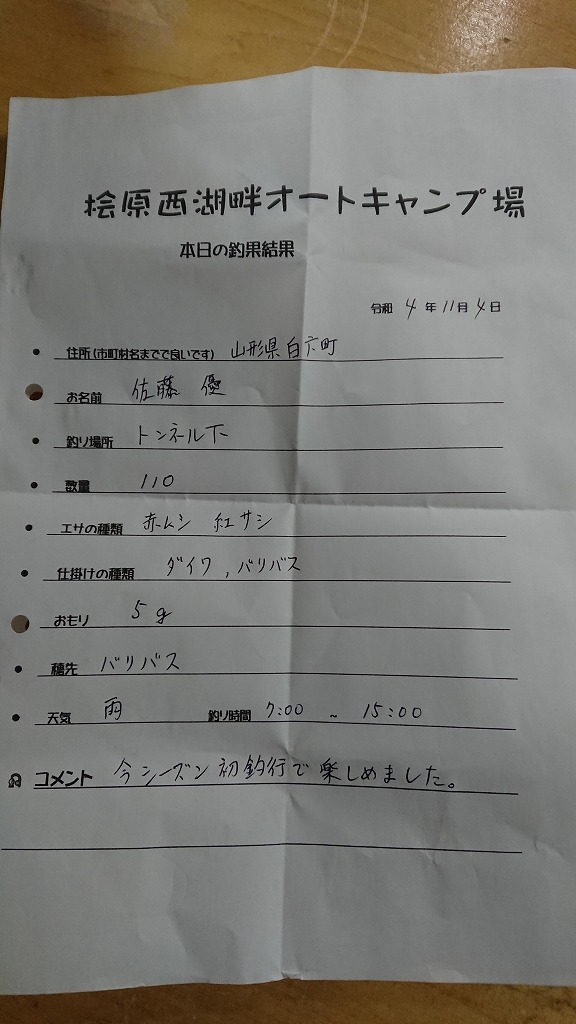 桧原西湖畔オートキャンプ場
本日の釣果結果
令和 4 年 11 月 4 日
住所(市町村名までで良いです) 山形県白六町
お名前 佐藤 優
釣り場所 トンネル下
数量 110
エサの種類 赤ムシ 紅サシ
仕掛けの種類 ダイワ, バリバス
おもり 5g
穂先 バリバス
天気 雨 釣り時間 7:00 ~ 15:00
コメント 今シーズン初釣行で楽しめました。